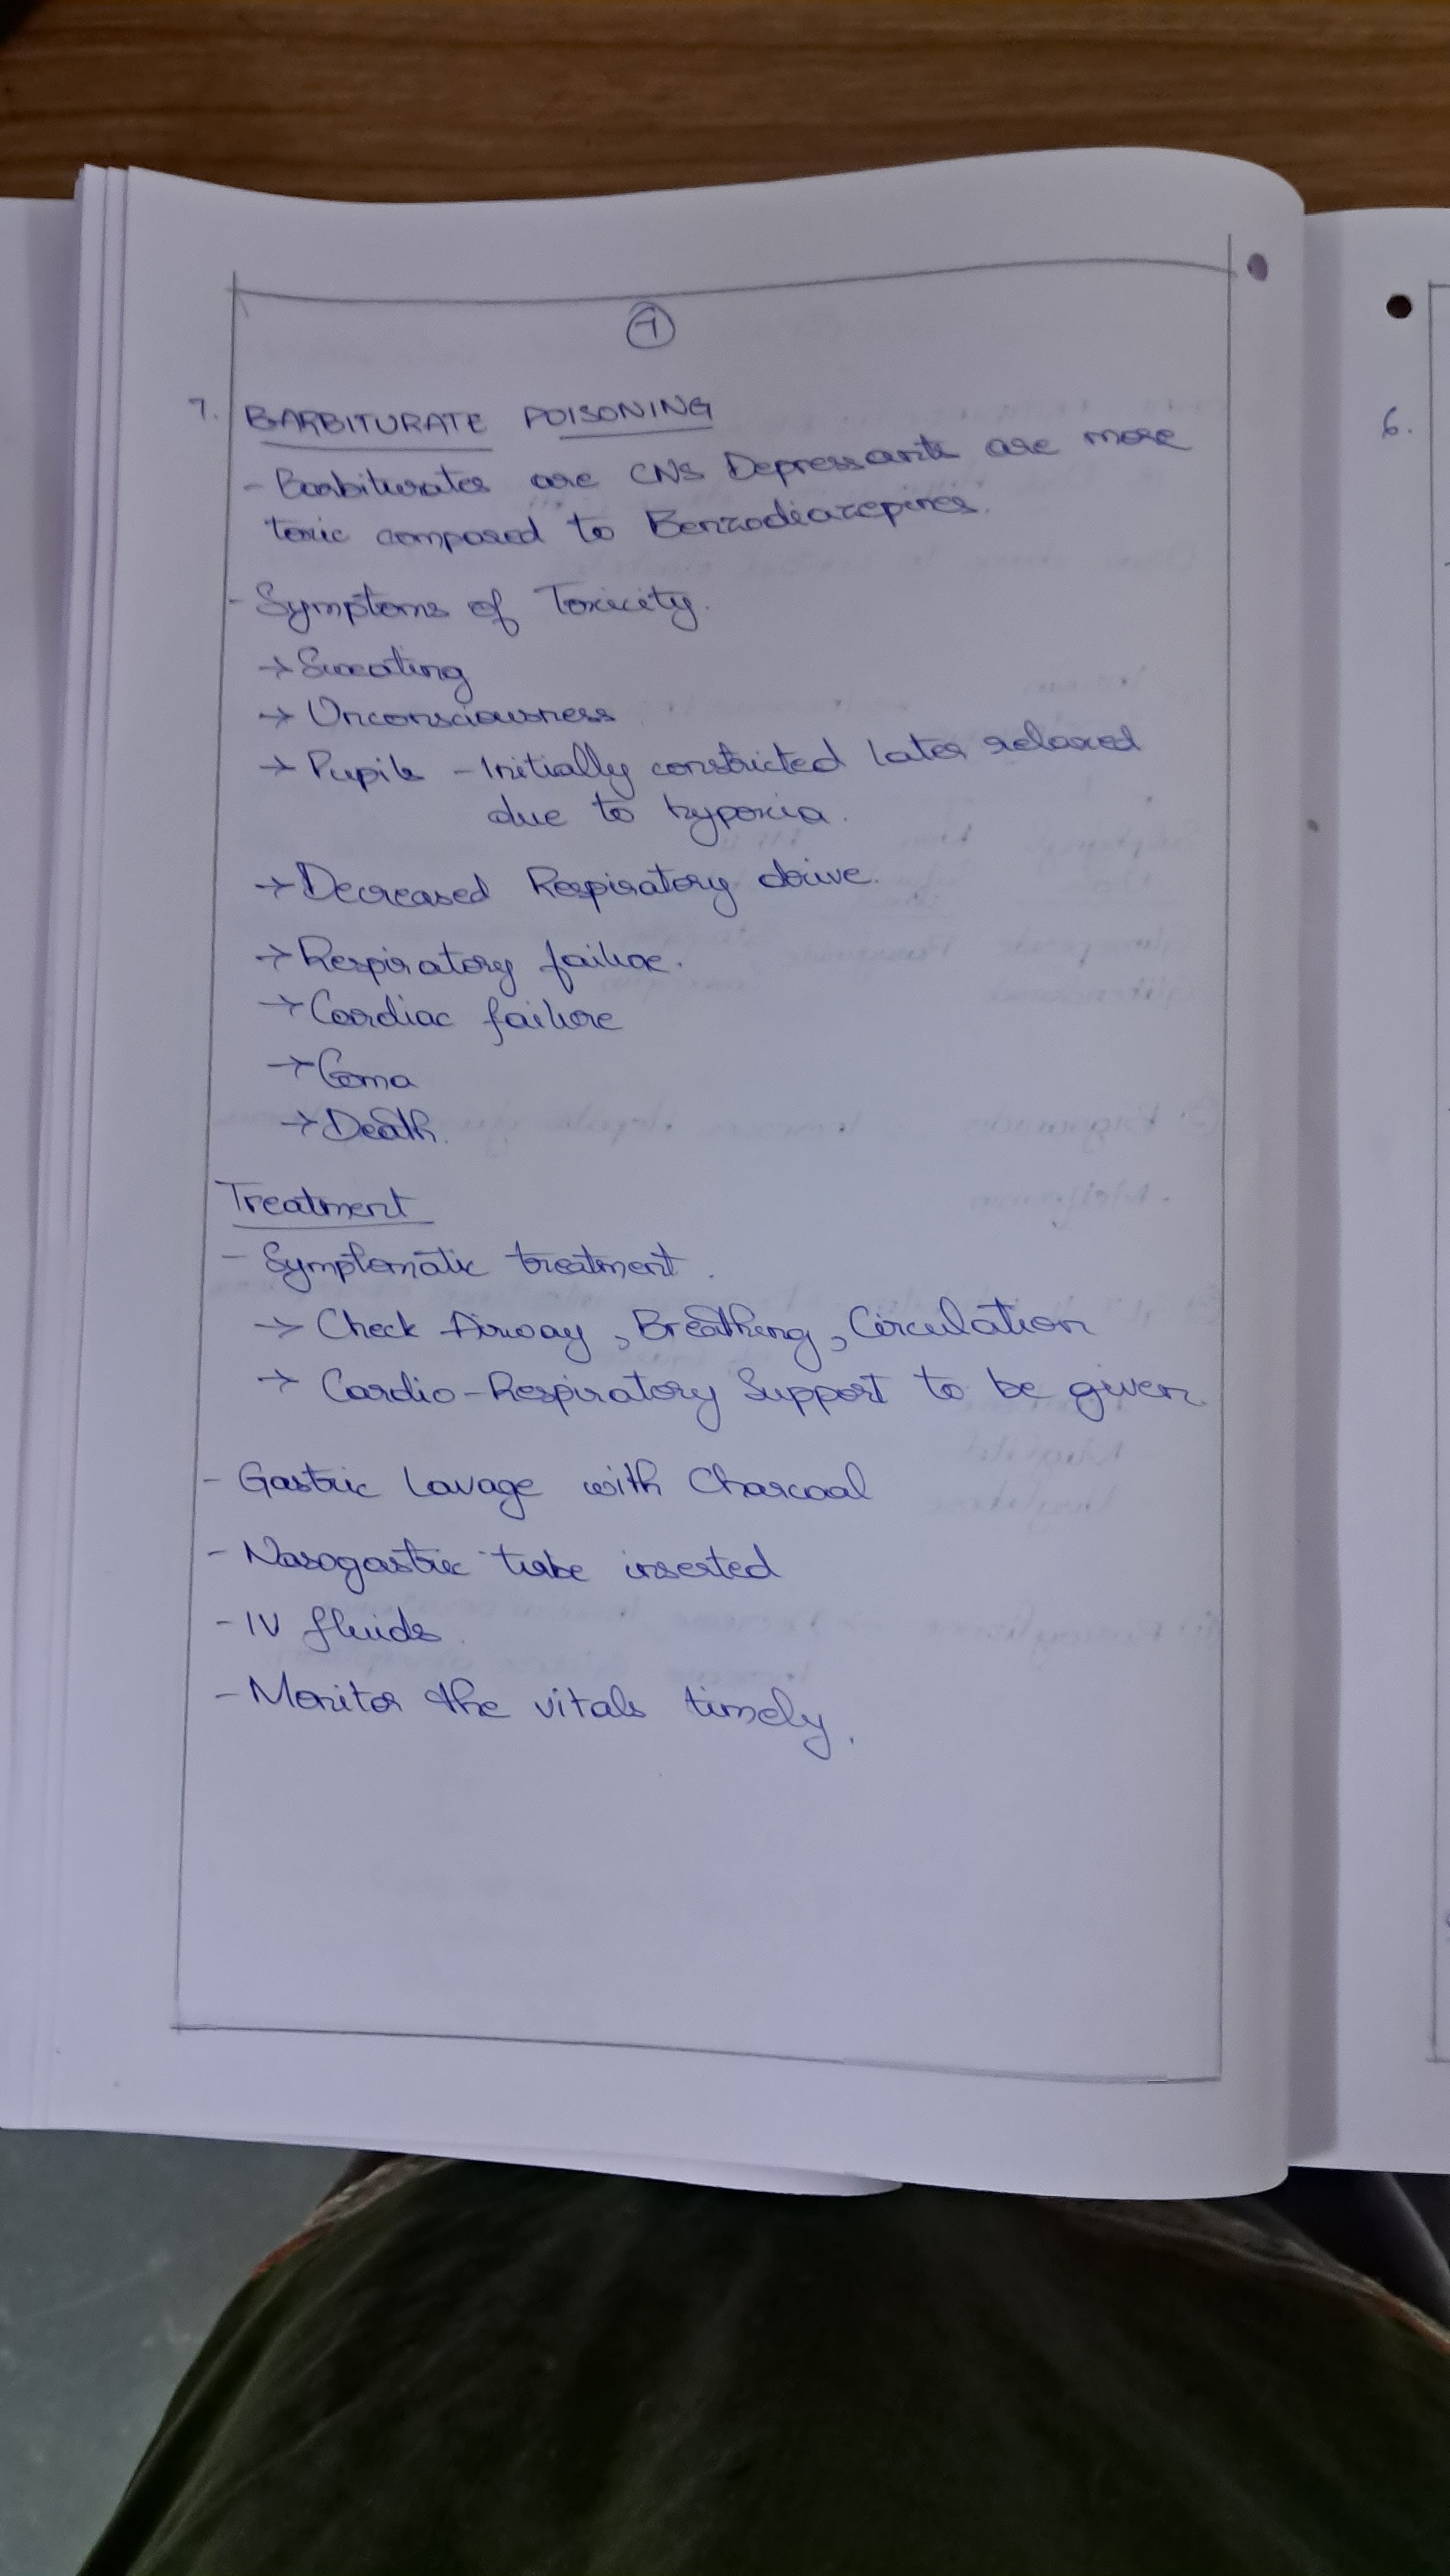 7
7. BARBITURATE POISONING
- Barbiturates are CNS Depressants are more
toxic compared to Benzodiazepines.
- Symptoms of Toxicity.
→ Sweating
→ Unconsciousness
→ Pupils - Initially constricted later relaxed
due to hypoxia.
→ Decreased Respiratory drive.
→ Respiratory failure.
→ Cardiac failure
→ Coma
→ Death.
Treatment
- Symptomatic treatment.
→ Check Airway, Breathing, Circulation
→ Cardio-Respiratory Support to be given
- Gastric Lavage with Charcoal
- Nasogastric tube inserted
- IV fluids.
- Monitor the vitals timely.
6.